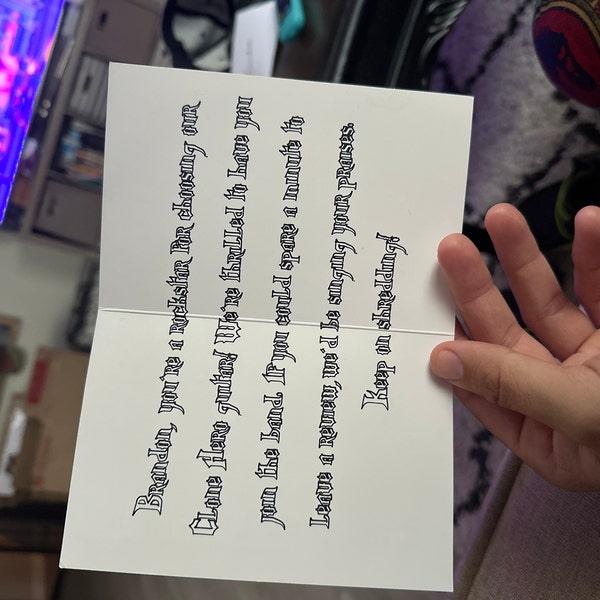 Brandon, you're a rockstar for choosing our
Clone Hero guitar! We're thrilled to have you
join the band. If you could spare a minute to
leave a review, we'd be singing your praises.
Keep on shredding!